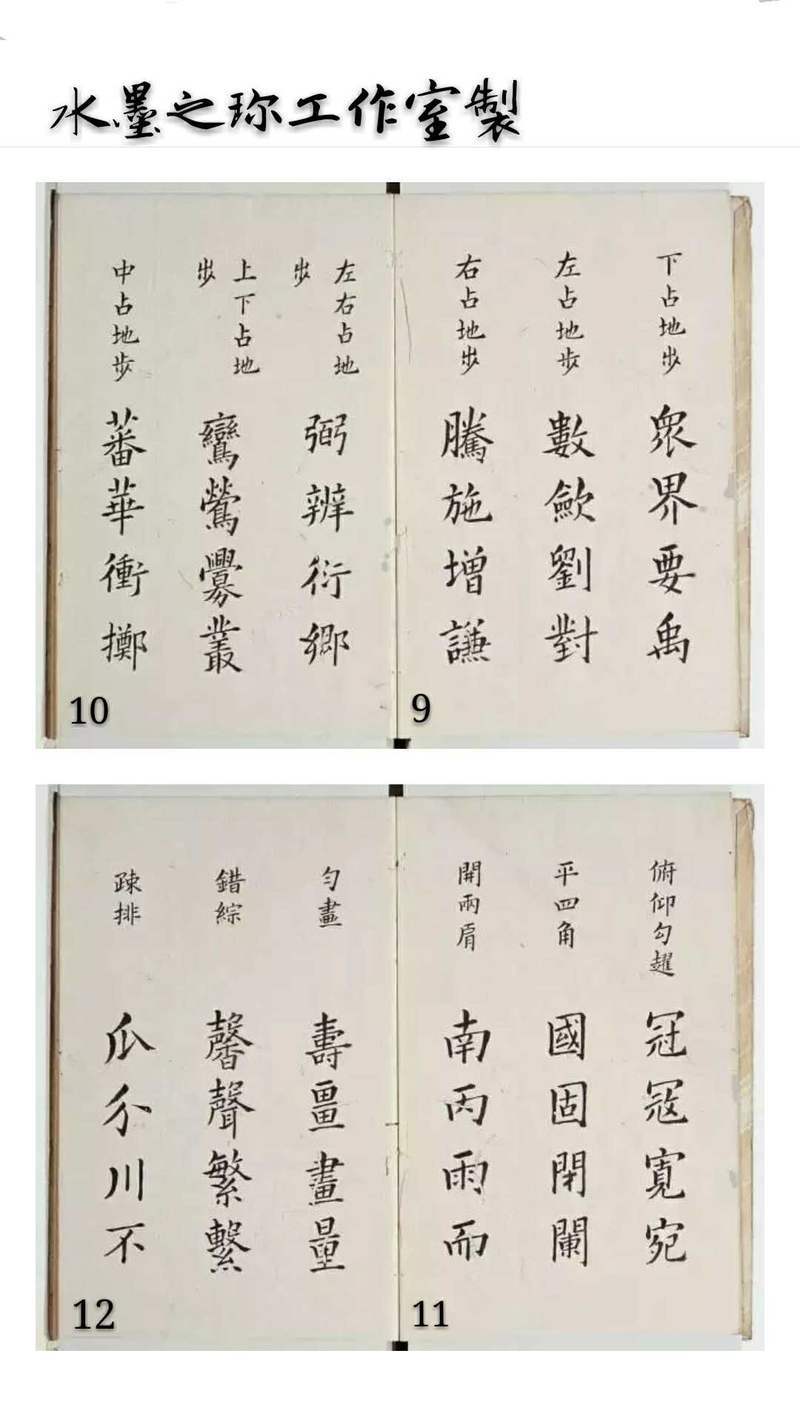 水墨之珎工作室製
下占地步
衆界要禹
左占地步
數歛劉對
右占地步
騰施增謙
9
左右占地
步
弼辨衍鄉
上下占地
步
鸞鶯爨叢
中占地步
蕃華衝擲
10
俯仰勾趯
冠冦寬宛
平四角
國固閉闌
開兩肩
南丙雨而
11
勻畫
壽畺畫量
錯綜
馨聲繁繫
疎排
瓜介川不
12